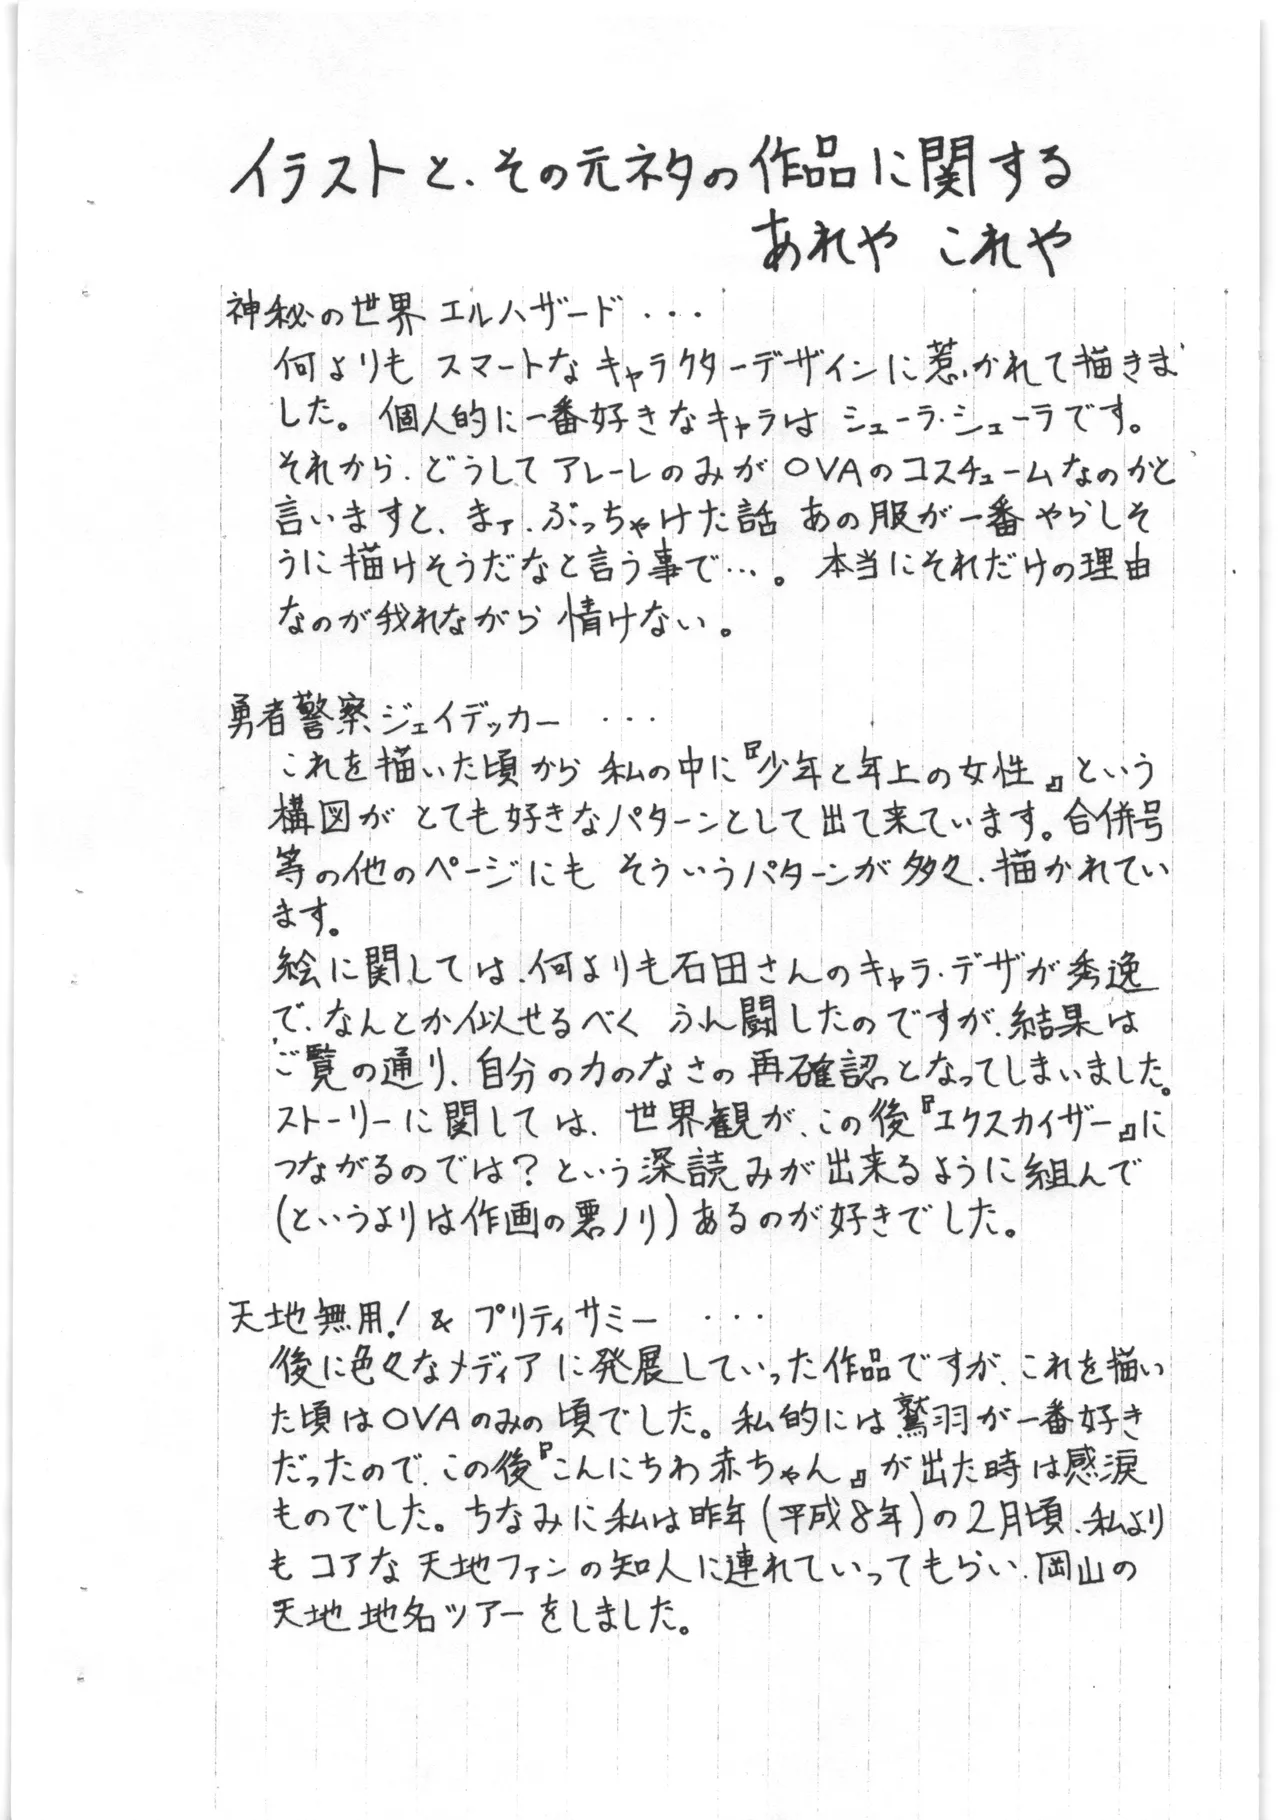 イラストと、その元ネタの作品に関する
あれや これや
神秘の世界 エルハザード ・・・
何よりも スマートな キャラクターデザインに惹かれて描きま
した。個人的に一番好きなキャラは シェーラ・シェーラです。
それから、どうしてアレーレのみが OVAのコスチュームなのかと
言いますと、まァ、ぶっちゃけた話 あの服が一番やらしそ
うに描けそうだなと言う事で…。 本当にそれだけの理由
なのが我れながら 情けない。
勇者警察ジェイデッカー ・・・
これを描いた頃から 私の中に『少年と年上の女性』という
構図が とても好きなパターンとして出て来ています。合併号
等の他のページにも そういうパターンが多々、描かれてい
ます。
絵に関しては、何よりも石田さんのキャラ・デザが秀逸
で、なんとか似せるべく ふん闘したのですが、結果は
ご覧の通り、自分の力のなさの再確認となってしまいました。
ストーリーに関しては、世界観が、この後『エクスカイザー』に
つながるのでは?という深読みが出来るように組んで
(というよりは作画の悪ノリ)あるのが好きでした。
天地無用!& プリティサミー ・・・
後に色々なメディアに発展していった作品ですが、これを描い
た頃はOVAのみの頃でした。私的には鷲羽が一番好き
だったので、この後『こんにちわ赤ちゃん』が出た時は感涙
ものでした。ちなみに私は昨年(平成8年)の2月頃、私より
もコアな天地ファンの知人に連れていってもらい、岡山の
天地 地名ツアーをしました。